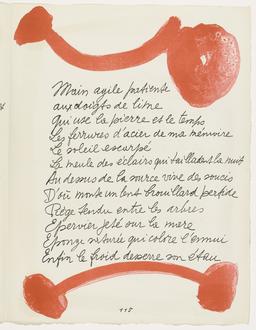 Main agile patiente
aux doigts de lime
Qui use la pierre et le temps
Les ferrures d'acier de ma mémoire
Le soleil escarpé
La meule des éclairs qui tailladent la nuit
Au dessus de la source vive des soucis
D'où monte un lent brouillard perfide
Piège tendu entre les arbres
Epervier jeté sur la mare
Eponge saturée qui colore l'ennui
Enfin le froid desserre son étau
115